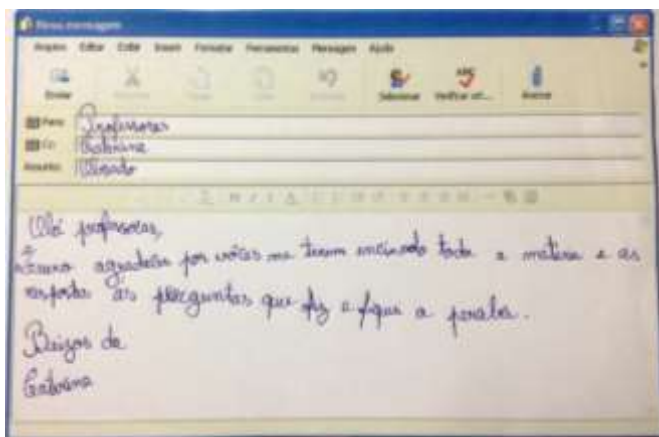 Nova mensagem
Arquivo Editar Exibir Inserir Formatar Ferramentas Mensagem Ajuda
Enviar Selecionar Verificar ort... Anexar
Para: Professoras
Cc: Catarina
Assunto:
Olá professoras,
agradecer por vocês me terem encinado toda a matéria e as
resposta ás perguntas que fiz e fiquei a perceber.
Beijos de
Catarina